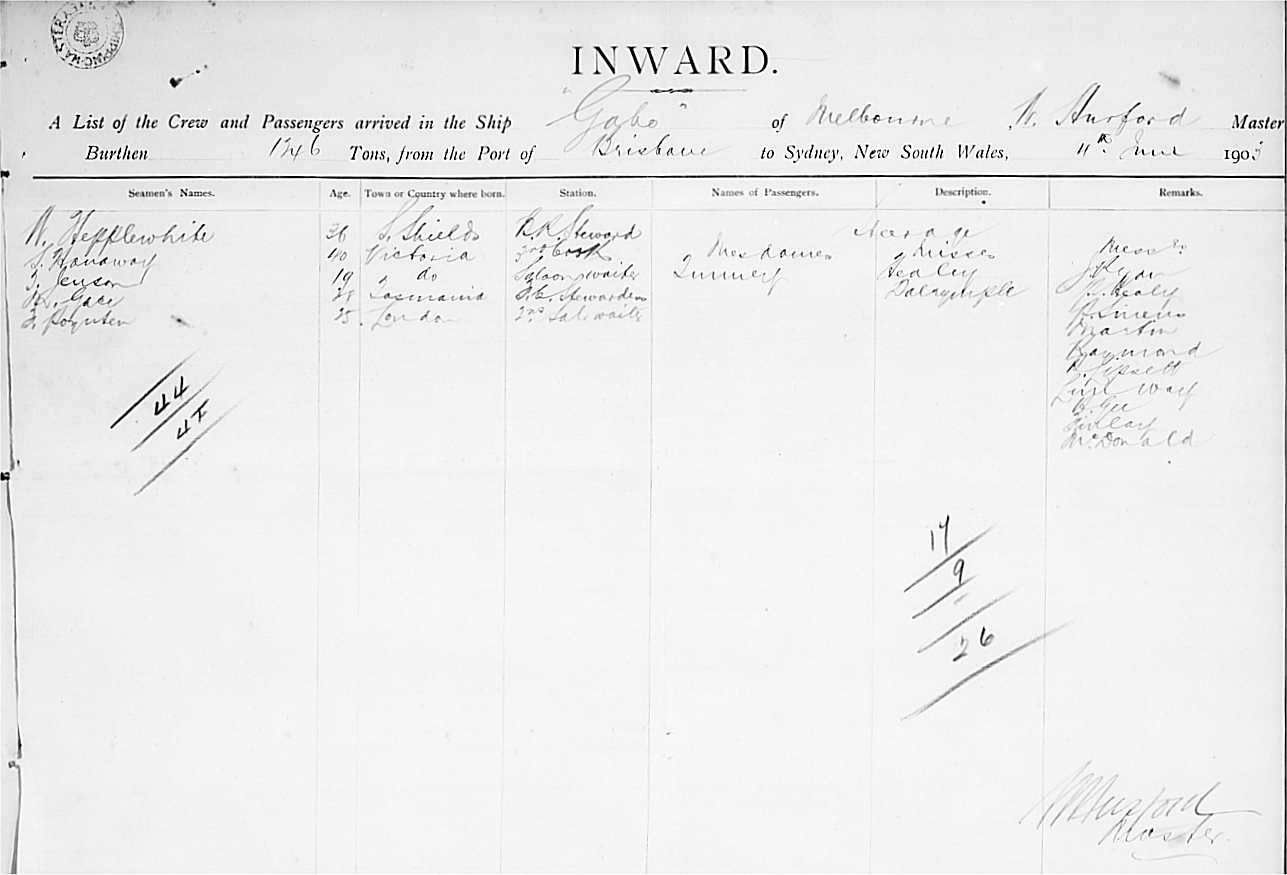 INWARD.
A List of the Crew and Passengers arrived in the Ship "Gabo" of Melbourne, W. Hurford Master
Burthen 1246 Tons, from the Port of Brisbane to Sydney, New South Wales, 4th June 1905
Seamen's Names. Age. Town or Country where born. Station. Names of Passengers. Description. Remarks.
Steerage
W. Hepplewhite 36 S. Shields Steward Mesdames Misses Messrs
S. Hanaway 40 Victoria 3rd Cook Quinney Healy J. Ryan
Jenson 19 do Saloon waiter Dalrymple Healy
Gace 38 Tasmania Stewardess
Poynten 25 London 2nd Sal. waiter Martin
Raymond
Lipsett
Way
Gee
Finlay
McDonald
44
17
9
26
W Hurford
Master